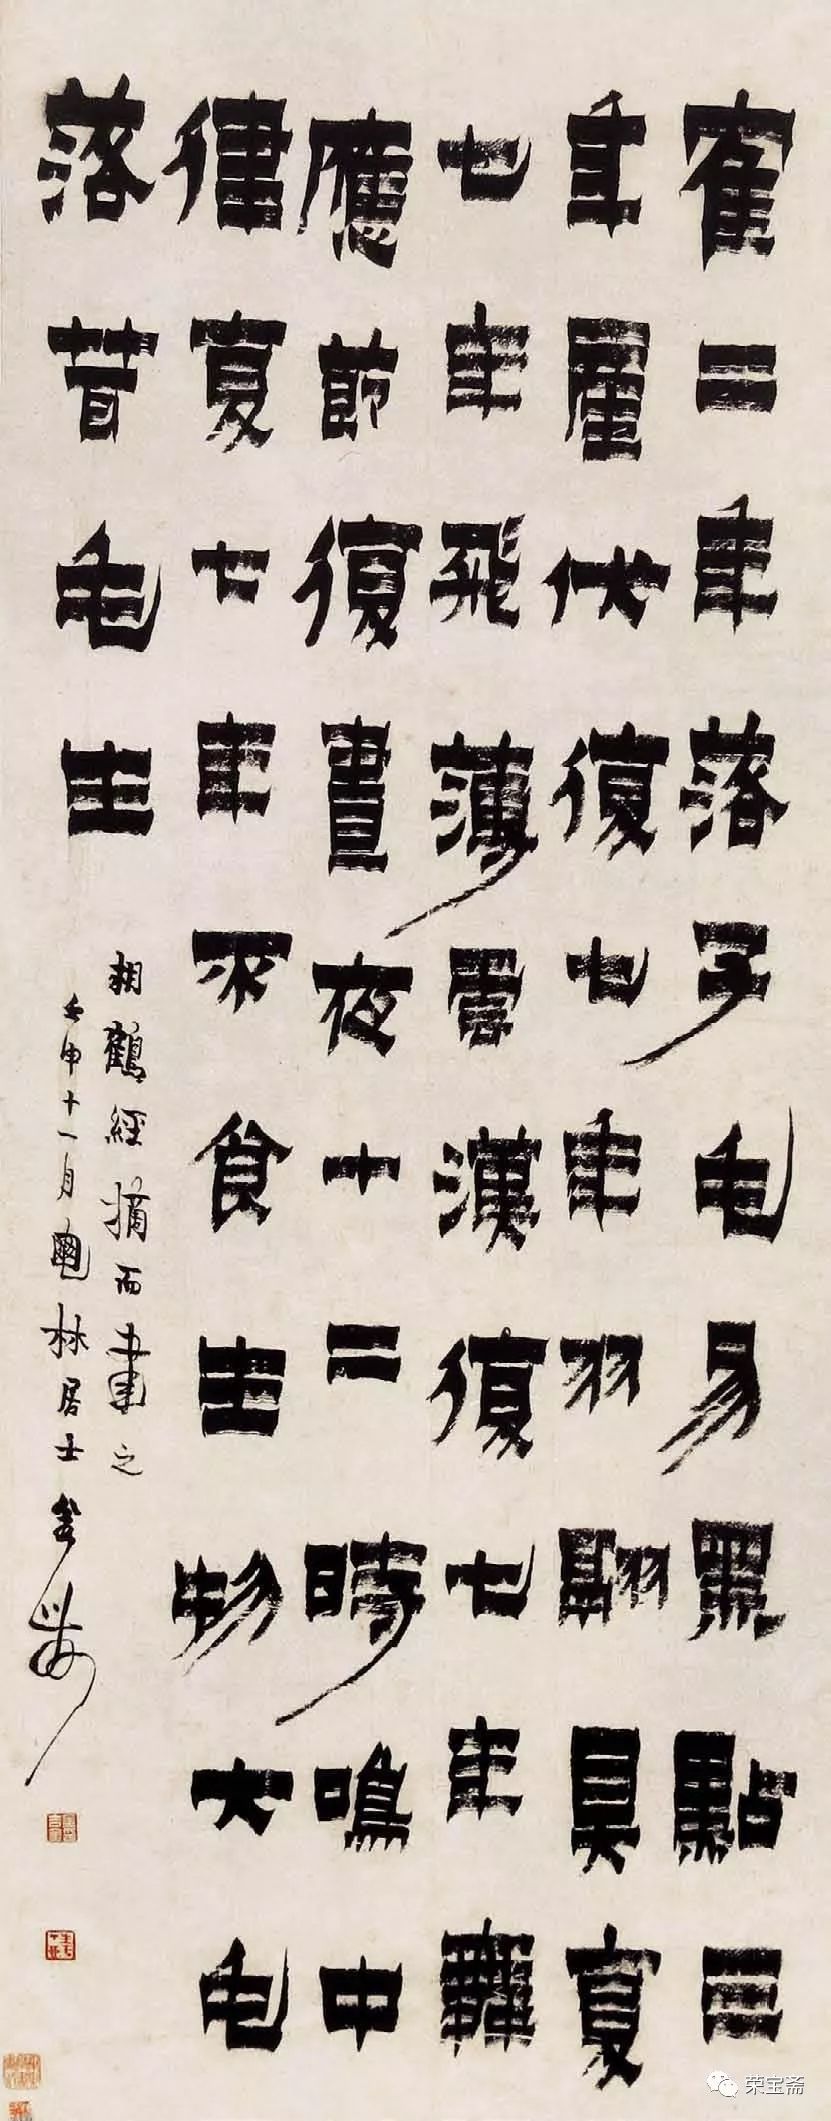 寉二年落子毛易黑點三
年產伏復七年羽翮具复
七年飛薄雲漢復七年舞
應節復晝夜十二時鳴中
律复七年不食生物大毛
落茸毛生
相鶴經摘而書之
壬申十一月龜林居士
荣宝斋